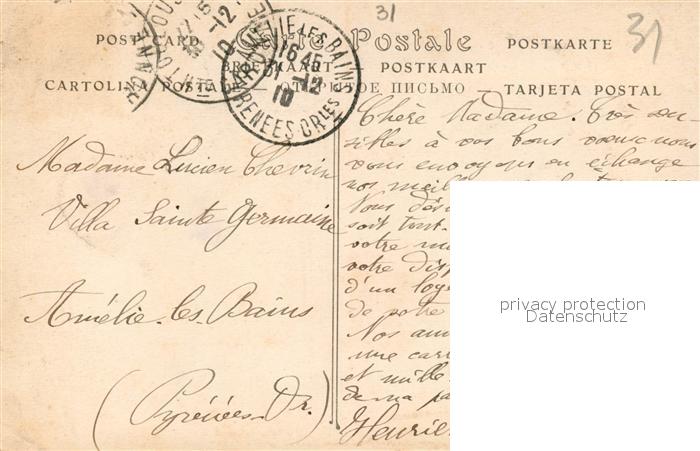 31
31
POST CARD — Carte Postale — POSTKARTE
BRIEFKAART — POSTKAART
CARTOLINA POSTALE — ОТКРЫТОЕ ПИСЬМО — TARJETA POSTAL
AMÉLIE-LES-BAINS
16 45
31 -12
10
PYRÉNÉES-ORLES
Madame Lucien Chevrin
Villa Sainte Germaine
Amélie-les-Bains
(Pyrénées-Or.)
Chère Madame. Très sen-
sibles à vos bons vœux nous
vous envoyons en échange
nos
Nous
soit tout-
votre
votre
d'un
de votre
Nos
une
et mille
de ma
privacy protection
Datenschutz